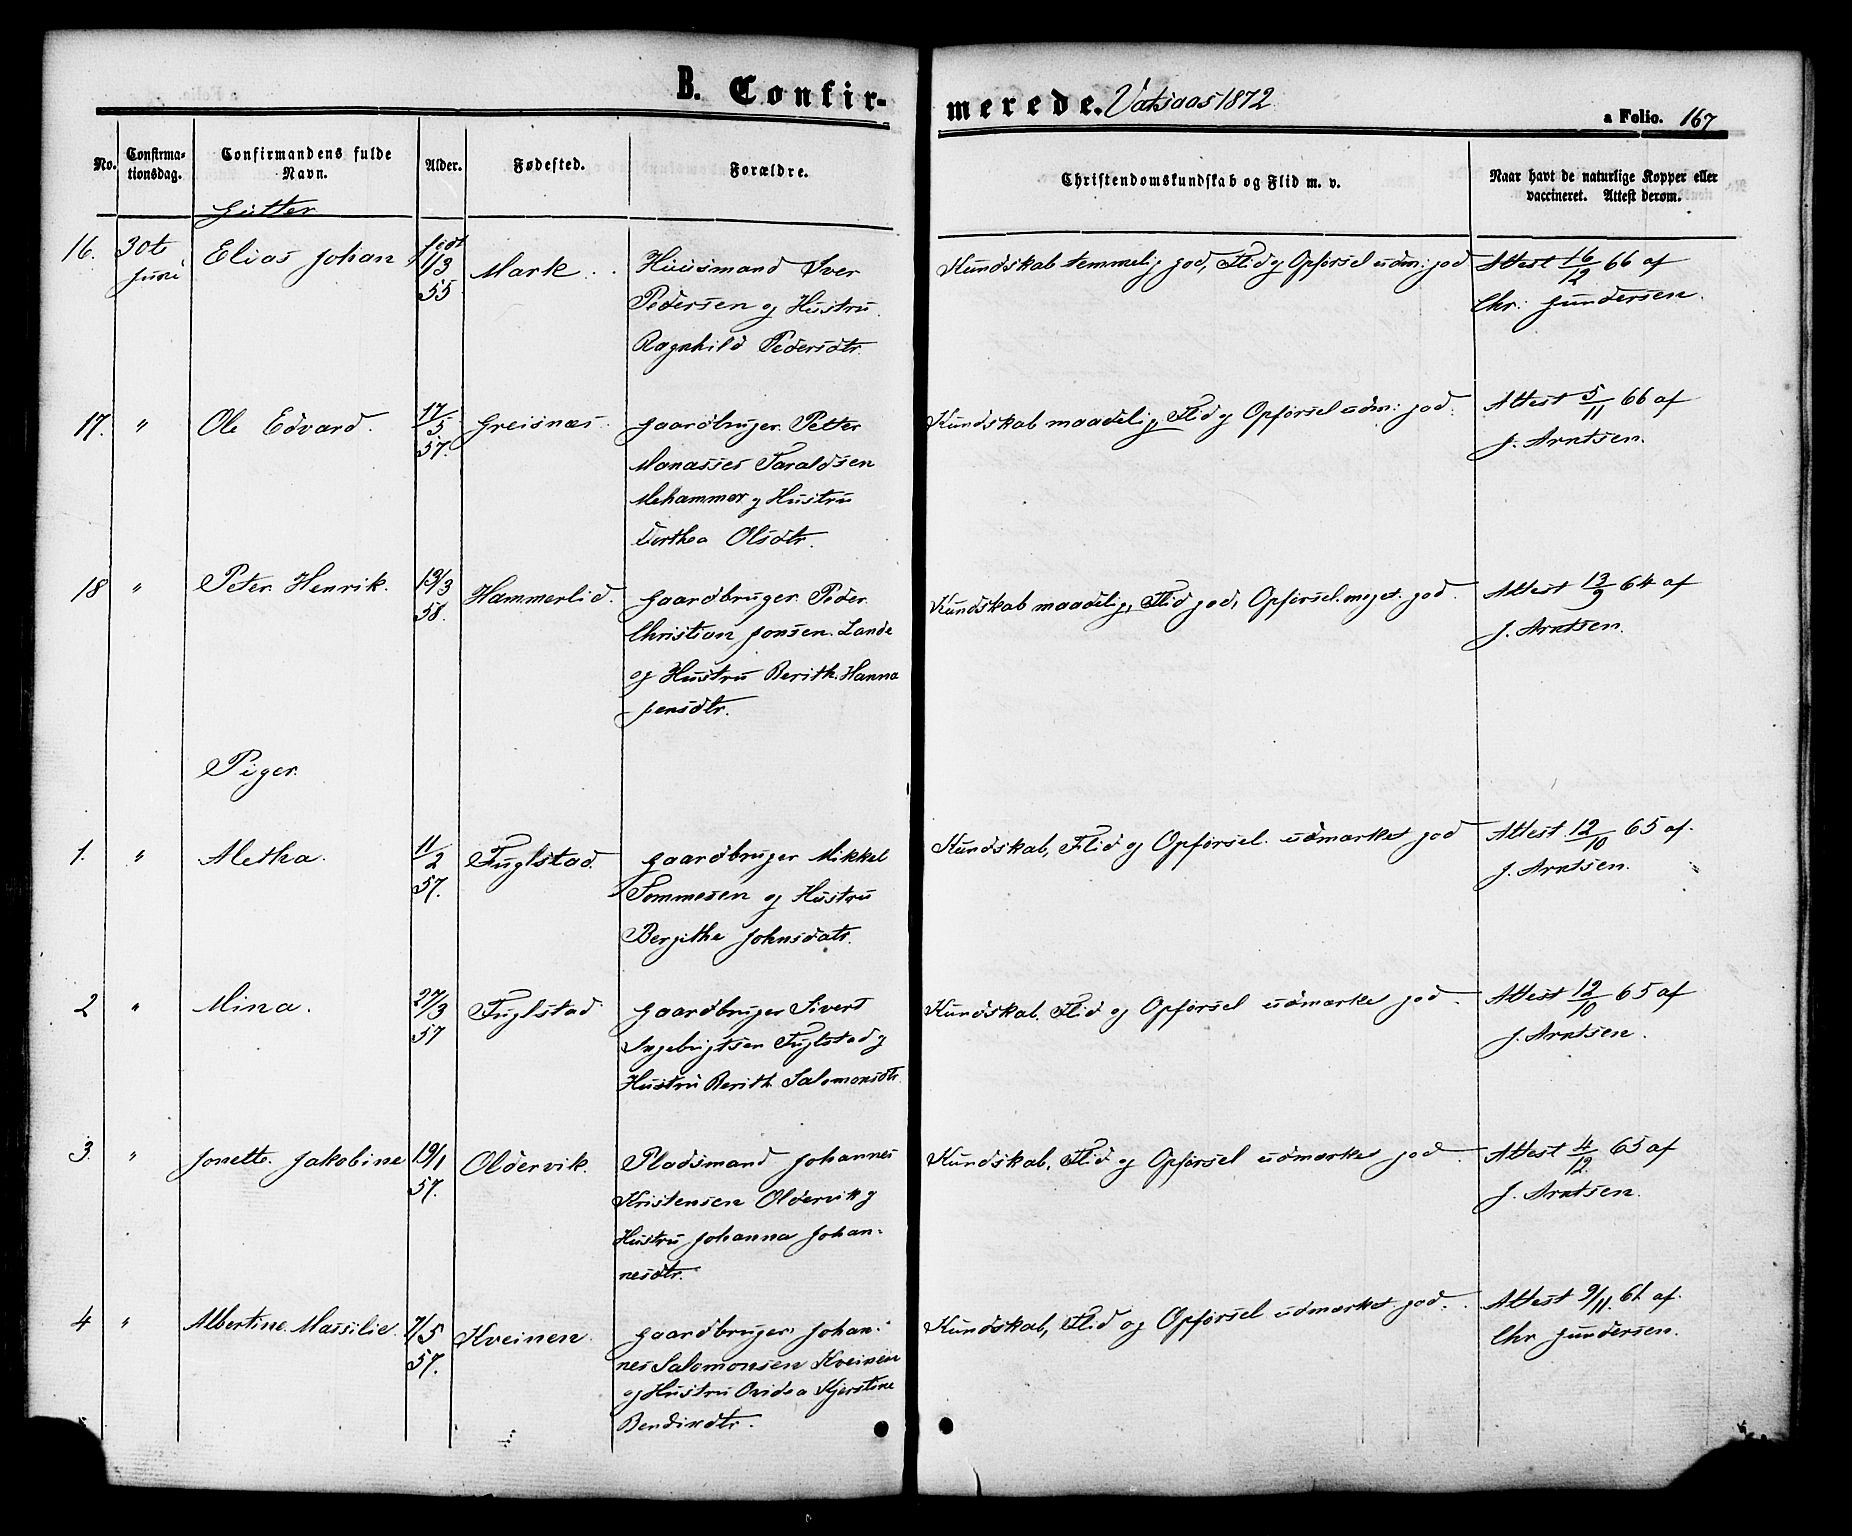 B. Confirmerede. Vatsaas 1872
a Folio. 167
No. Confirmationsdag. Confirmandens fulde Navn. Alder. Fødested. Forældre. Christendomskundskab og Flid m. v. Naar havt de naturlige Kopper eller vaccineret. Attest derom.
Gutter
16. 30te Juni Elias Johan født 1/3 55 Mark. Huusmand Iver Kundskab temmelig god, Flid og Opførsel udm: god Attest 16/12 66 af
Pedersen og Hustru Chr: Gundersen.
Ragnhild Pedersdtr.
17. " Ole Edvard. 17/5 57. Greisnæs. Gaardbruger Petter Kundskab maadelig, Flid og Opførsel udm: god. Attest 5/11 66 af
Manasses Taraldsen J. Arntsen.
Mehammer og Hustru
Dorthea Olsdtr.
18 " Peter Henrik. 13/3 58. Hammerlid. Gaardbruger Peder Kundskab maadelig, Flid god, Opførsel meget god. Attest 13/9 64 af
Christian Jonsen Lande J. Arntsen.
og Hustru Berith Hanna
Jensdtr.
Piger.
1. " Aletha. 11/2 57. Fuglstad. Gaardbruger Mikkel Kundskab, Flid og Opførsel udmærket god Attest 12/10 65 af
Tommesen og Hustru J. Arntsen.
Bergithe Johnsdatr.
2 " Mina. 27/3 57 Fuglstad Gaardbruger Sivert Kundskab, Flid og Opførsel udmærket god. Attest 12/10 65 af
Ingebrigtsen Fuglstad og J. Arntsen.
Hustru Berith Salomonsdtr.
3. " Jonette Jakobine 19/1 57. Oldervik. Pladsmand Johannes Kundskab, Flid og Opførsel udmærket god. Attest 4/12 65 af
Kristensen Oldervik og J. Arntsen.
Hustru Johanna Johan-
nesdtr.
4 " Albertine Massilie 7/5 57. Kveinen. Gaardbruger Johan- Kundskab, Flid og Opførsel udmærket god. Attest 9/11 61 af
nes Salomonsen Kveinen Chr Gundersen.
og Hustru Ovidea Kjerstine
Bendixdtr.